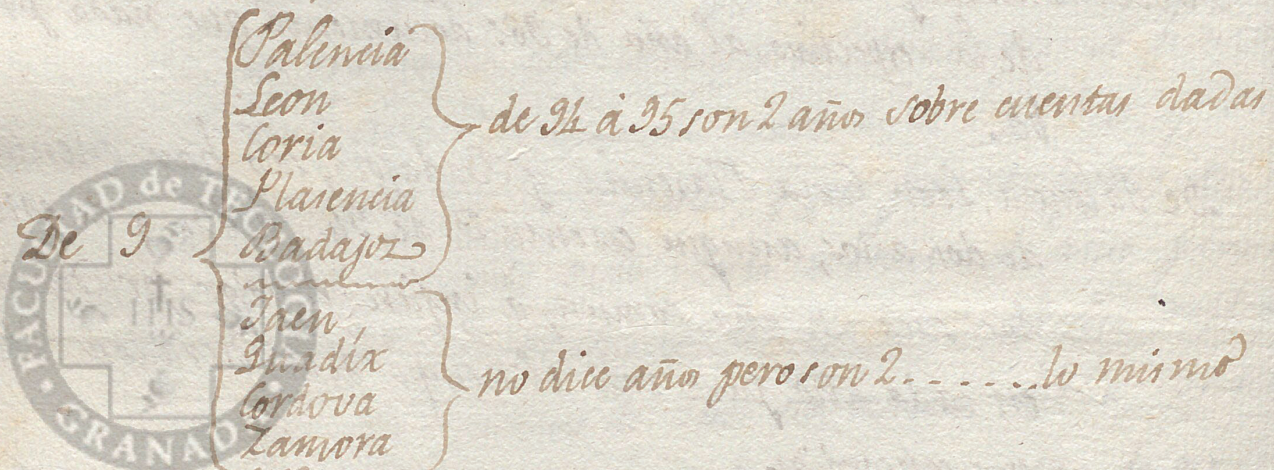 Palencia
Leon
Coria
Plasencia
Badajoz
de 94 à 95 son 2 años sobre cuentas dadas
De 9
Jaen
Guadix
Cordova
Zamora
no dice años pero son 2.......lo mismo
FACULTAD de TEOLOGIA
GRANADA
IHS